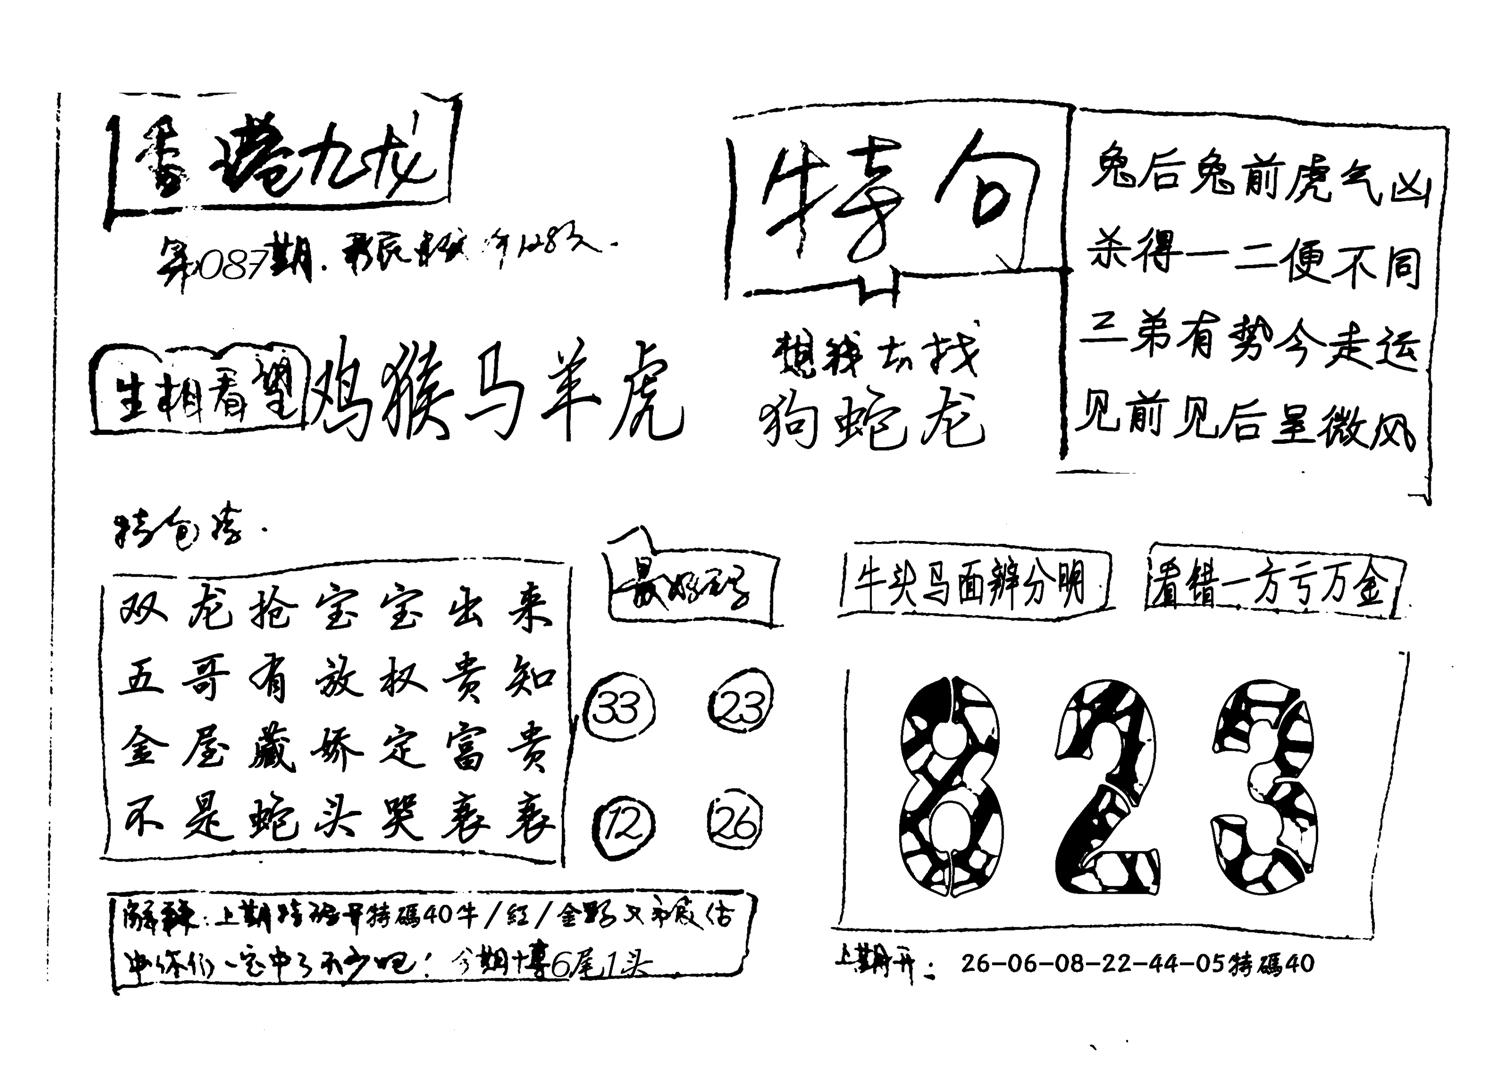 香港九龙
第087期.
生相看望 鸡猴马羊虎
特句
想钱去找
狗蛇龙
兔后兔前虎气凶
杀得一二便不同
三弟有势今走运
见前见后呈微风
特包
双龙抢宝宝出来
五哥有放权贵知
金屋藏娇定富贵
不是蛇头哭衰衰
最好码
33 23
12 26
牛头马面辨分明
看错一方亏万金
823
解释:上期特码开特碼40牛/红/金
你们一定中了不少吧!今期博6尾1头
上期开: 26-06-08-22-44-05特碼40